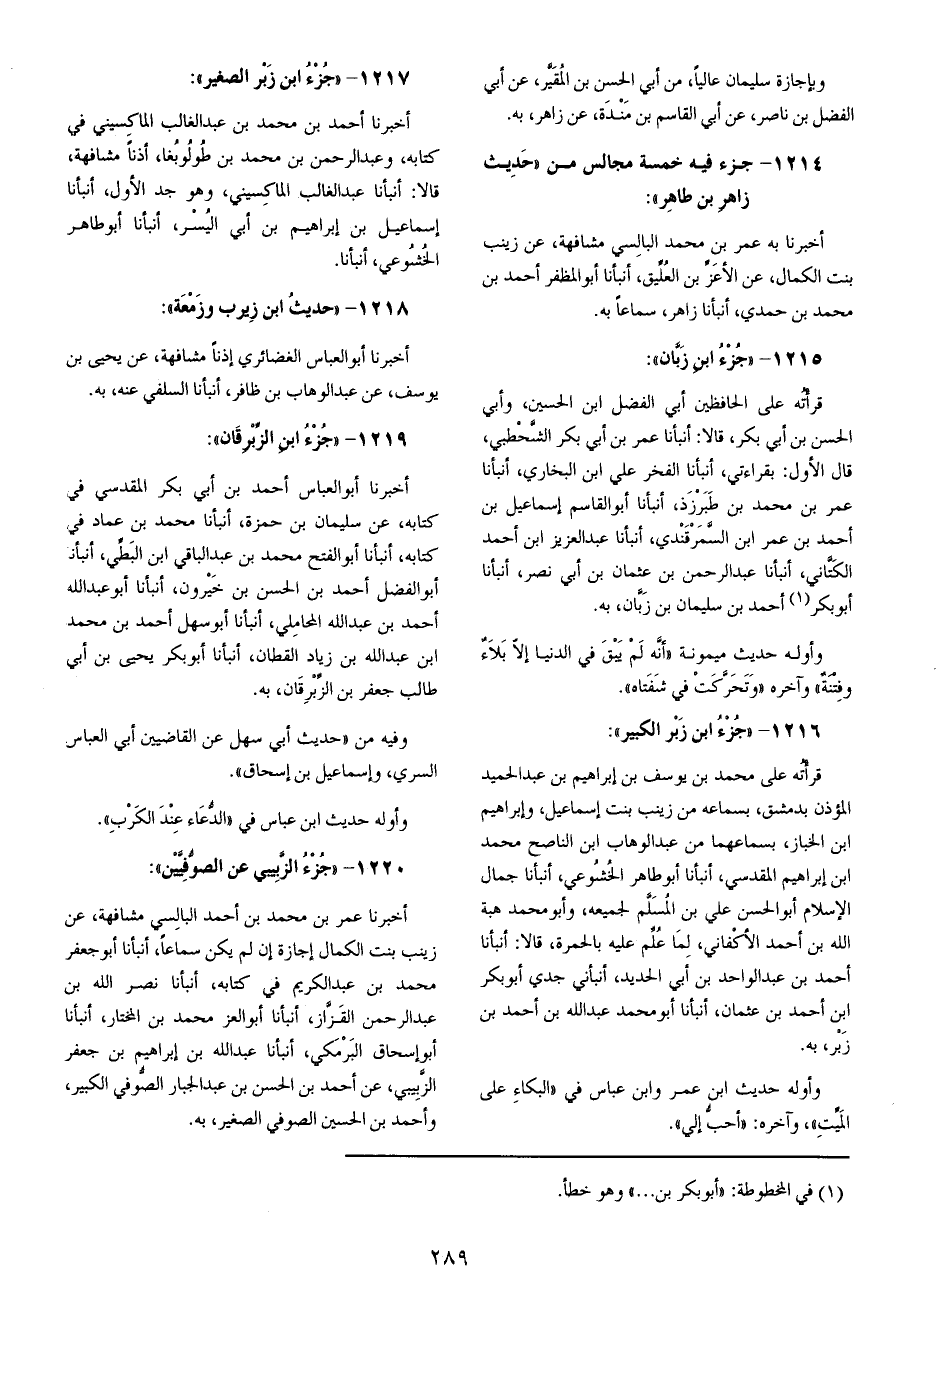 وبإجازة سليمان عالياً، من أبي الحسن بن المُقَيَّر، عن أبي
الفضل بن ناصر، عن أبي القاسم بن مَنْدَة، عن زاهر، به.
١٢١٤- جزء فيه خمسة مجالس من «حَدِيث
زاهرِ بن طاهِر»:
أخبرنا به عمر بن محمد البالِسي مشافهة، عن زينب
بنت الكمال، عن الأعَزِّ بن العُلِّيق، أنبأنا أبوالمظفر أحمد بن
محمد بن حمدي، أنبأنا زاهر، سماعاً به.
١٢١٥- «جُزْءُ ابنِ زَبَّان»:
قرأتُه على الحافظين أبي الفضل ابن الحسين، وأبي
الحسن بن أبي بكر، قالا: أنبأنا عمر بن أبي بكر الشَّحْطبي،
قال الأول: بقراءتي، أنبأنا الفخر علي ابن البخاري، أنبأنا
عمر بن محمد بن طَبَرْزَذ، أنبأنا أبوالقاسم إسماعيل بن
أحمد بن عمر ابن السَّمَرْقَنْدي، أنبأنا عبدالعزيز ابن أحمد
الكَتَّاني، أنبأنا عبدالرحمن بن عثمان بن أبي نصر، أنبأنا
أبوبكر(١) أحمد بن سليمان بن زَبَّان، به.
وأوله حديث ميمونة «أَنَّه لَمْ يَبْقَ في الدنيا إلاّ بَلَاءٌ
وفِتْنَةٌ» وآخره «وَتَحَرَّكَتْ في شَفَتاه».
١٢١٦- «جُزْءُ ابن زَبْر الكبير»:
قرأتُه على محمد بن يوسف بن إبراهيم بن عبدالحميد
المؤذن بدمشق، بسماعه من زينب بنت إسماعيل، وإبراهيم
ابن الخباز، بسماعهما من عبدالوهاب ابن الناصح محمد
ابن إبراهيم المقدسي، أنبأنا أبوطاهر الخُشُوعي، أنبأنا جمال
الإسلام أبوالحسن علي بن المُسَلَّم لجميعه، وأبومحمد هبة
الله بن أحمد الأكْفاني، لِمَا عُلِّم عليه بالحمرة، قالا: أنبأنا
أحمد بن عبدالواحد بن أبي الحديد، أنبأني جدي أبوبكر
ابن أحمد بن عثمان، أنبأنا أبومحمد عبدالله بن أحمد بن
زَبْر، به.
وأوله حديث ابن عمر وابن عباس في «البكاءِ على
المَيِّتِ»، وآخره: «أحبُّ إلي».
١٢١٧- «جُزْءُ ابن زَبْر الصغير»:
أخبرنا أحمد بن محمد بن عبدالغالب الماكسيني في
كتابه، وعبدالرحمن بن محمد بن طُولُوبُغا، أذناً مشافهة،
قالا: أنبأنا عبدالغالب الماكِسيني، وهو جد الأول، أنبأنا
إسماعيل بن إبراهيم بن أبي اليُسْر، أنبأنا أبوطاهر
الخُشُوعي، أنبأنا.
١٢١٨- «حديثُ ابن زِيرب وزَمْعَة»:
أخبرنا أبوالعباس الغضائري إذناً مشافهة، عن يحيى بن
يوسف، عن عبدالوهاب بن ظافر، أنبأنا السلفي عنه، به.
١٢١٩- «جُزْءُ ابنِ الزِّبْرِقَان»:
أخبرنا أبوالعباس أحمد بن أبي بكر المقدسي في
كتابه، عن سليمان بن حمزة، أنبأنا محمد بن عماد في
كتابه، أنبأنا أبوالفتح محمد بن عبدالباقي ابن البَطِّي، أنبأنا
أبوالفضل أحمد بن الحسن بن خَيْرون، أنبأنا أبوعبدالله
أحمد بن عبدالله المحاملي، أنبأنا أبوسهل أحمد بن محمد
ابن عبدالله بن زياد القطان، أنبأنا أبوبكر يحيى بن أبي
طالب جعفر بن الزِّبْرِقَان، به.
وفيه من «حديث أبي سهل عن القاضيين أبي العباس
السري، وإسماعيل بن إسحاق».
وأوله حديث ابن عباس في «الدُّعَاء عِنْدَ الكَرْبِ».
١٢٢٠- «جُزْءُ الزَّبِيبي عن الصوُفيَّيْن»:
أخبرنا عمر بن محمد بن أحمد البالِسي مشافهة، عن
زينب بنت الكمال إجازة إن لم يكن سماعاً، أنبأنا أبوجعفر
محمد بن عبدالكريم في كتابه، أنبأنا نصر الله بن
عبدالرحمن القَزَّاز، أنبأنا أبوالعز محمد بن المختار، أنبأنا
أبوإسحاق البَرْمَكي، أنبأنا عبدالله بن إبراهيم بن جعفر
الزَّبِيبي، عن أحمد بن الحسن بن عبدالجبار الصُّوفي الكبير،
وأحمد بن الحسين الصوفي الصغير، به.
(١) في المخطوطة: «أبوبكر بن...» وهو خطأ.
٢٨٩